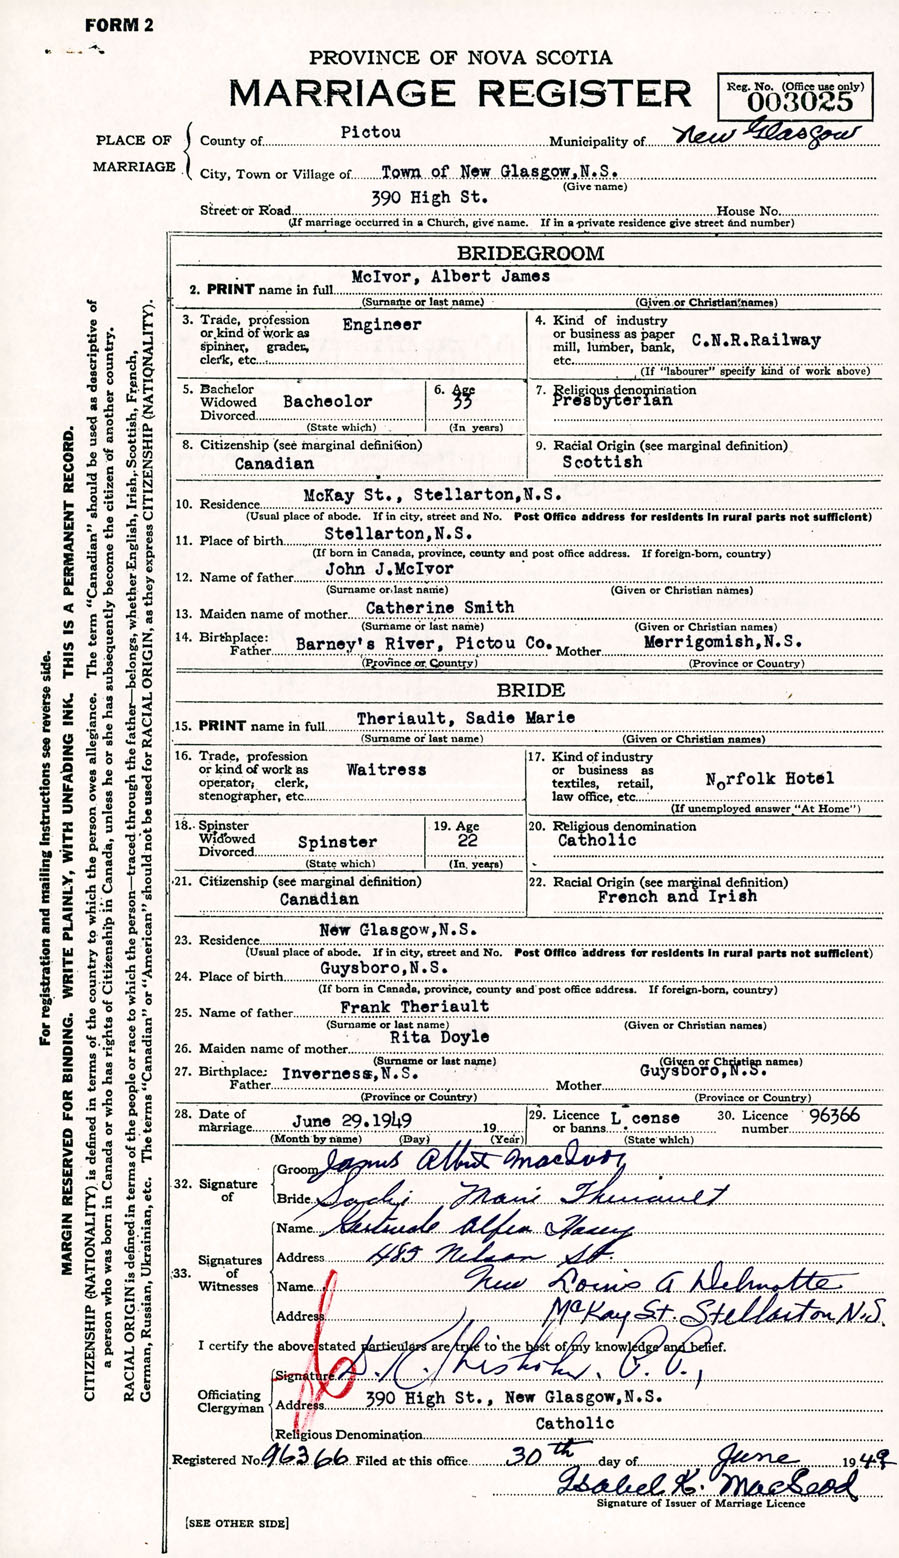 FORM 2
PROVINCE OF NOVA SCOTIA
MARRIAGE REGISTER
Reg. No. (Office use only)
003025
PLACE OF MARRIAGE
County of Pictou Municipality of New Glasgow
City, Town or Village of Town of New Glasgow,N.S.
(Give name)
390 High St.
Street or Road House No.
(If marriage occurred in a Church, give name. If in a private residence give street and number)
BRIDEGROOM
2. PRINT name in full McIvor, Albert James
(Surname or last name) (Given or Christian names)
3. Trade, profession or kind of work as spinner, grader, clerk, etc. Engineer
4. Kind of industry or business as paper mill, lumber, bank, etc. C.N.R.Railway
(If "labourer" specify kind of work above)
5. Bachelor Widowed Divorced Bacheolor
(State which)
6. Age 33
(In years)
7. Religious denomination
Presbyterian
8. Citizenship (see marginal definition)
Canadian
9. Racial Origin (see marginal definition)
Scottish
10. Residence McKay St., Stellarton,N.S.
(Usual place of abode. If in city, street and No. Post Office address for residents in rural parts not sufficient)
11. Place of birth Stellarton,N.S.
(If born in Canada, province, county and post office address. If foreign-born, country)
12. Name of father John J.McIvor
(Surname or last name) (Given or Christian names)
13. Maiden name of mother Catherine Smith
(Surname or last name) (Given or Christian names)
14. Birthplace: Father Barney's River, Pictou Co. Mother Merrigomish,N.S.
(Province or Country) (Province or Country)
BRIDE
15. PRINT name in full Theriault, Sadie Marie
(Surname or last name) (Given or Christian names)
16. Trade, profession or kind of work as operator, clerk, stenographer, etc. Waitress
17. Kind of industry or business as textiles, retail, law office, etc. Norfolk Hotel
(If unemployed answer "At Home")
18. Spinster Widowed Divorced Spinster
(State which)
19. Age 22
(In years)
20. Religious denomination
Catholic
21. Citizenship (see marginal definition)
Canadian
22. Racial Origin (see marginal definition)
French and Irish
23. Residence New Glasgow,N.S.
(Usual place of abode. If in city, street and No. Post Office address for residents in rural parts not sufficient)
24. Place of birth Guysboro,N.S.
(If born in Canada, province, county and post office address. If foreign-born, country)
25. Name of father Frank Theriault
(Surname or last name) (Given or Christian names)
26. Maiden name of mother Rita Doyle
(Surname or last name) (Given or Christian names)
27. Birthplace: Father Inverness,N.S. Mother Guysboro,N.S.
(Province or Country) (Province or Country)
28. Date of marriage June 29.1949 19
(Month by name) (Day) (Year)
29. Licence or banns L cense
(State which)
30. Licence number 96366
32. Signature of
Groom James Albert MacIvor
Bride Sadie Marie Theriault
33. Signatures of Witnesses
Name Gertrude
Address 485 Nelson St.
Name Louis A Delmotte
Address McKay St. Stellarton N.S.
I certify the above stated particulars are true to the best of my knowledge and belief.
Officiating Clergyman
Signature D. R. Chisholm, P.P.,
Address 390 High St., New Glasgow,N.S.
Religious Denomination Catholic
Registered No. 96366 Filed at this office 30th day of June 1949
Isabel K. MacLeod
Signature of Issuer of Marriage Licence
[SEE OTHER SIDE]
For registration and mailing instructions see reverse side.
MARGIN RESERVED FOR BINDING. WRITE PLAINLY, WITH UNFADING INK. THIS IS A PERMANENT RECORD.
CITIZENSHIP (NATIONALITY) is defined in terms of the country to which the person owes allegiance. The term "Canadian" should be used as descriptive of
a person who was born in Canada or who has rights of Citizenship in Canada, unless he or she has subsequently become the citizen of another country.
RACIAL ORIGIN is defined in terms of the people or race to which the person—traced through the father—belongs, whether English, Irish, Scottish, French,
German, Russian, Ukrainian, etc. The terms "Canadian" or "American" should not be used for RACIAL ORIGIN, as they express CITIZENSHIP (NATIONALITY).